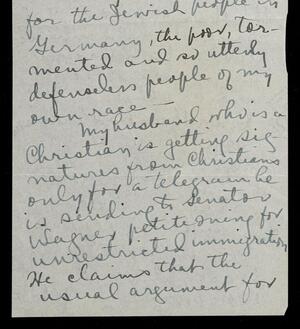 for the Jewish people in
Germany, the poor, tor-
mented and so utterly
defenseless people of my
own race —
My husband who is a
Christian is getting sig
natures from Christians
only for a telegram he
is sending to Senator
Wagner petitioning for
unrestricted immigration
He claims that the
usual argument for